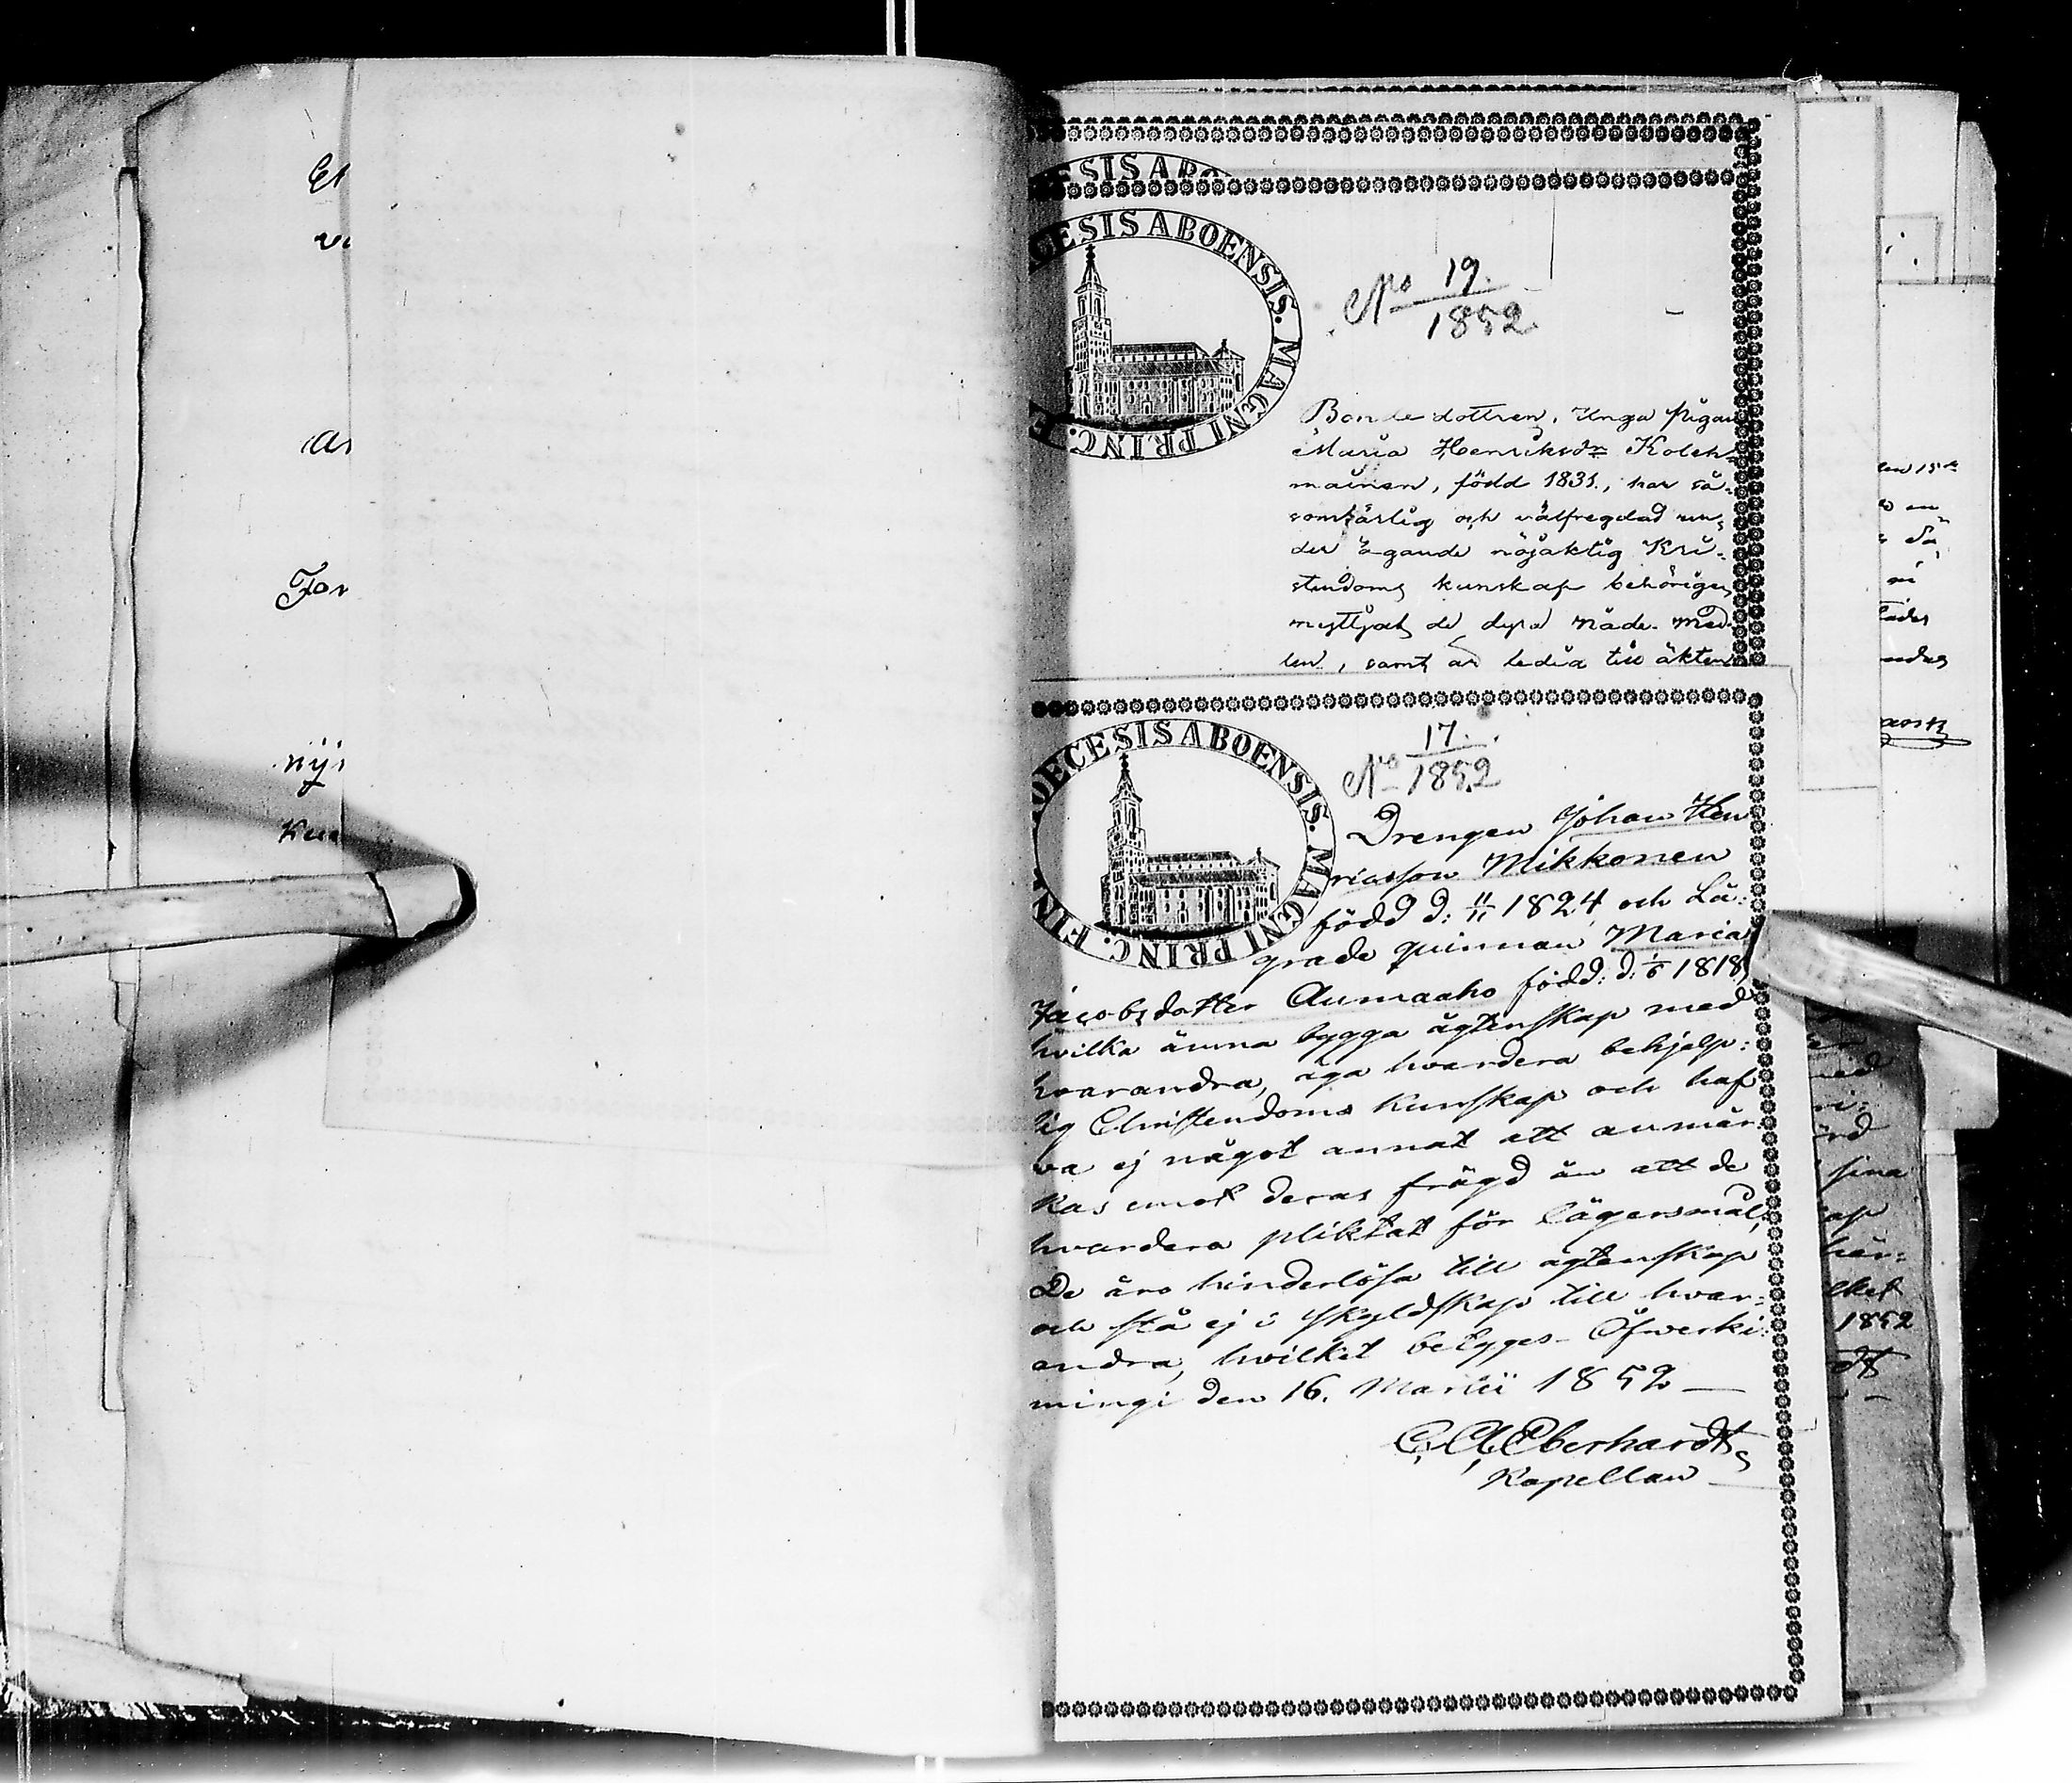 Et
As
For
nyt
Kun
DIOECESIS ABOENSIS. MAGNI PRINC. FINL
No 19.
1852
Bonde dottren, Unga Pigan
Maria Henriksdr Koleh-
mainen, född 1831., har så-
som ärlig och välfregdad un-
der ägande nöjaktig Kri-
stendoms kunskap behörigen
nyttjat de dyra Nåde-Med-
len, samt är ledia till äkten-
OECESIS ABOENSIS. MAGNI PRINC. FINL
No 17.
1852
Drengen Johan Hen
ricsson Mikkonen
född d: 11/11 1824 och Lä:
grade quinnan Maria
Jacobsdotter Aumaaho född: d: 1/6 1818,
hvilka ämna bygga ägtenskap med
hvarandra, äga hvardera behjelp:
lig Christendoms Kunskap och haf
va ej något annat att anmär
kas emot deras frägd än att de
hvardera pliktat för lägersmål,
De äro hinderlösa till ägtenskap
och stå ej i skyldskap till hvar:
andra, hvilket betygges- Öfverki
mingi den 16. Martii 1852 —
C. A. Eberhardt
Kapellan
den 15de
med
sina
1852